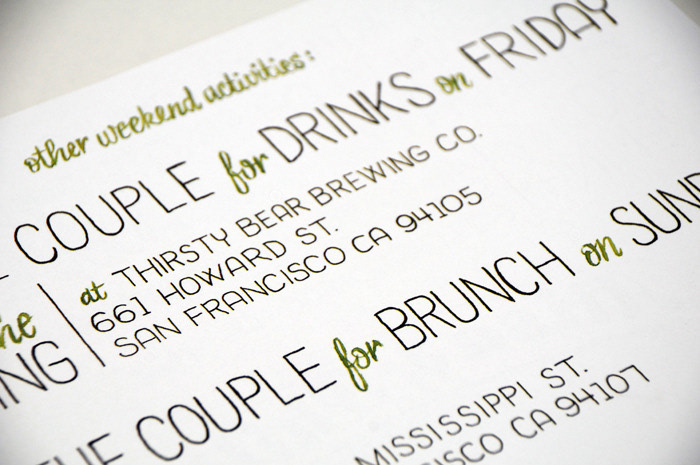 other weekend activities:
COUPLE for DRINKS on FRIDAY
at THIRSTY BEAR BREWING CO.
661 HOWARD ST.
SAN FRANCISCO CA 94105
THE COUPLE for BRUNCH on SUND
MISSISSIPPI ST.
CISCO CA 94107